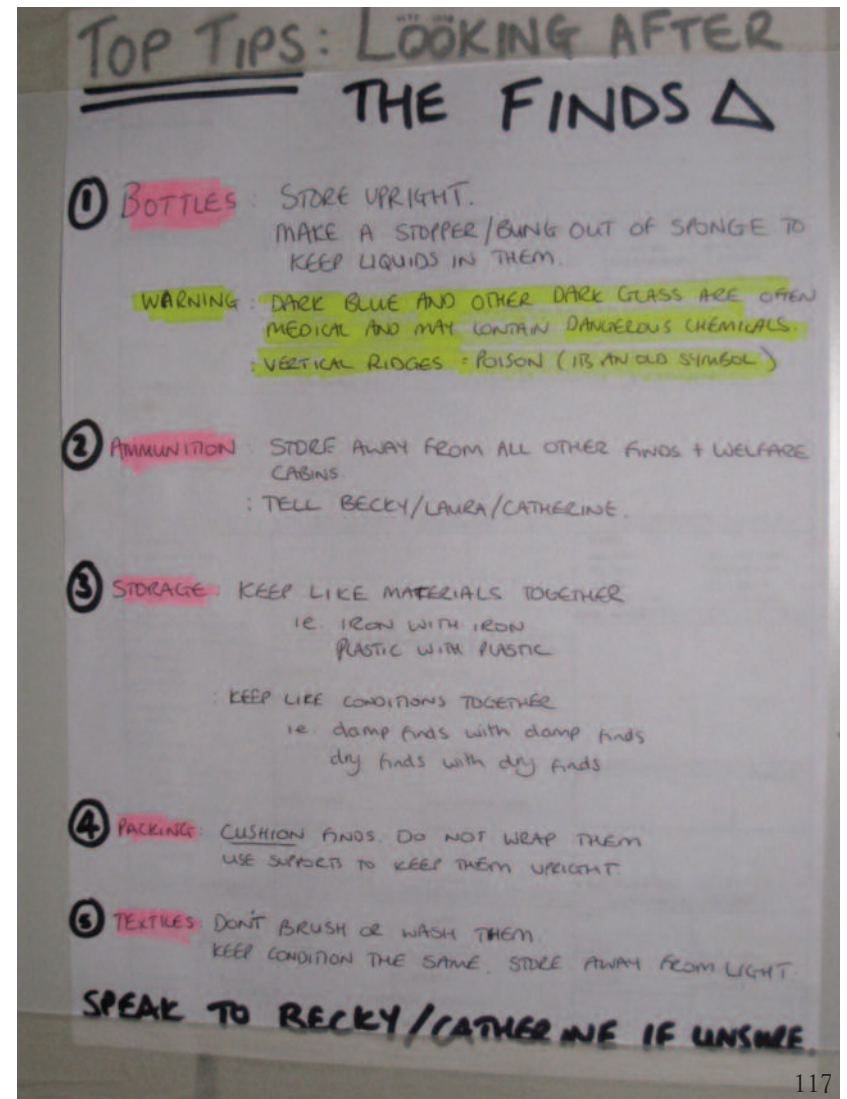 TOP TIPS: LOOKING AFTER
THE FINDS △
① BOTTLES: STORE UPRIGHT.
MAKE A STOPPER/BUNG OUT OF SPONGE TO
KEEP LIQUIDS IN THEM.
WARNING: DARK BLUE AND OTHER DARK GLASS ARE OFTEN
MEDICAL AND MAY CONTAIN DANGEROUS CHEMICALS.
: VERTICAL RIDGES = POISON (ITS AN OLD SYMBOL)
② AMMUNITION: STORE AWAY FROM ALL OTHER FINDS + WELFARE
CABINS.
: TELL BECKY/LAURA/CATHERINE.
③ STORAGE: KEEP LIKE MATERIALS TOGETHER
ie. IRON WITH IRON
PLASTIC WITH PLASTIC
: KEEP LIKE CONDITIONS TOGETHER
ie. damp finds with damp finds
dry finds with dry finds
④ PACKING: CUSHION FINDS. DO NOT WRAP THEM
USE SUPPORTS TO KEEP THEM UPRIGHT.
⑤ TEXTILES: DON'T BRUSH OR WASH THEM.
KEEP CONDITION THE SAME. STORE AWAY FROM LIGHT.
SPEAK TO BECKY/CATHERINE IF UNSURE.
117